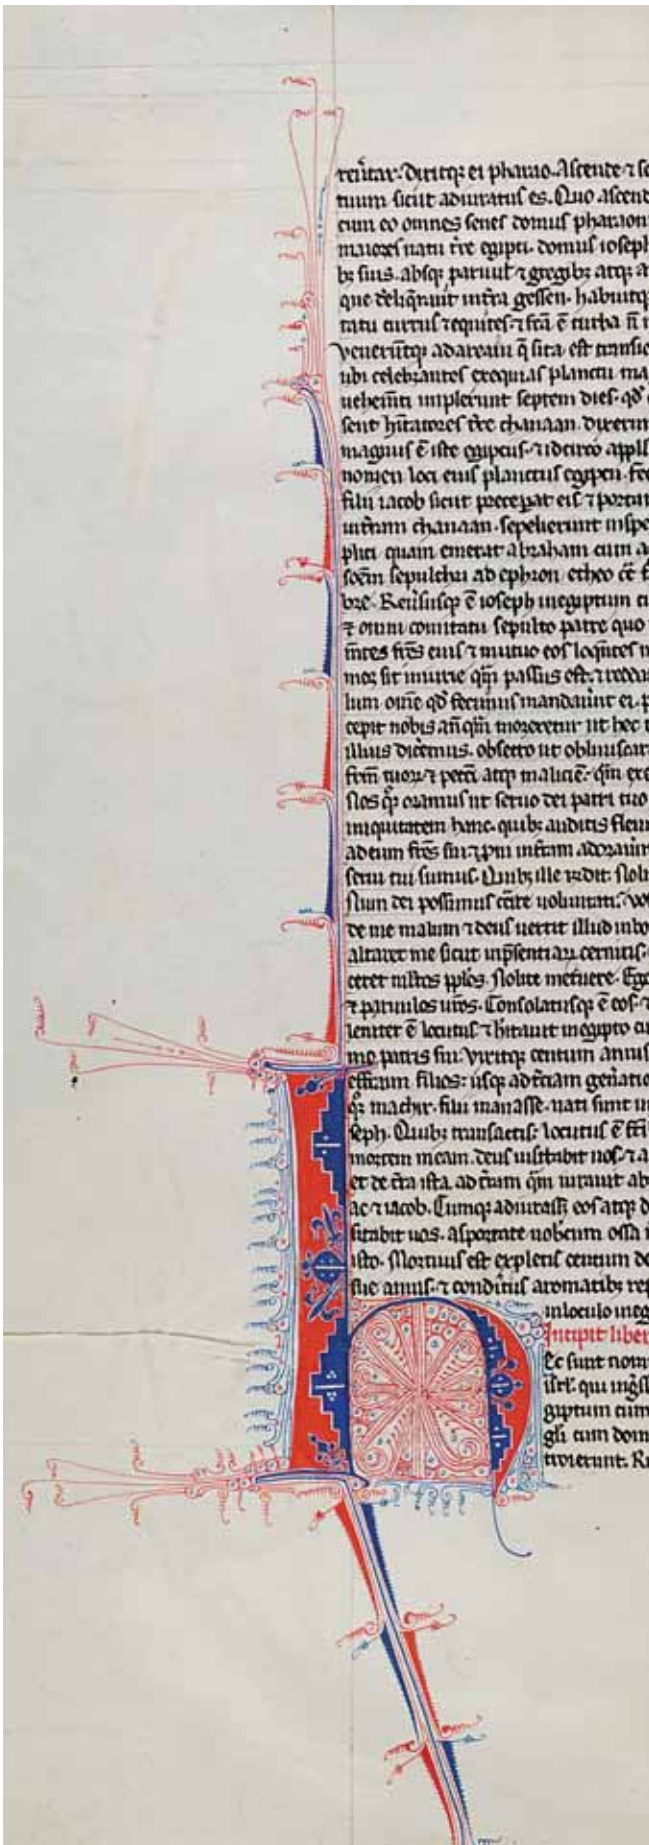 rentar. dixitqz ei pharao. Ascende ⁊ se
tuum sicut adiuratus es. Quo ascend
cum eo omnes senes domus pharaon
maiores natu tr̄e egipti. domus ioseph
bz suis. absqz paruul ⁊ gregibz atqz a
que reliq̄rant int̄ra gessen. habuitqz
tatu currus ⁊ equites. ⁊ fc̄a ē turba n̄
veneruntqz ad aream q̄ sita est trans
ubi celebrantes exequias planctu ma
uehem̄ti impleuerunt septem dies. qd̄
sent hītatores tr̄e chanaan. dixerun
magnus ē iste egiptus. ⁊ idcirco appll
nomen loci eius planctus egypti. fec
filii iacob sicut preceperat eis ⁊ portan
int̄ram chanaan. sepelierunt in spe
plici quam emerat abraham cum a
soēm sepulchri ab ephron etheo
bre. Reūsusqz ē ioseph in egiptum cu
⁊ omni comitatu sepulto patre quo
m̄tes fr̄es eius ⁊ mutuo eos loq̄ntes
mor sit iniurie q̄m passus est. ⁊ redda
lum om̄e qd̄ fecimus mandaūnt ei. p
cepit nobis an̄ q̄m moreretur ut hec
illius dicemus. obsecro ut obliuiscar
fr̄m tuorz ⁊ pecc̄i atqz malicie. q̄m exe
Nos qz oramus ut seruo dei patri tuo
iniquitatem hanc. quibz auditis fleui
ad eum fr̄es sui ⁊ pni int̄ram adoraūn
serui tui sumus. Quibz ille rn̄dit. Noli
Num dei possumus
de me malum ⁊ deus uertit illud in bo
altaret me sicut in pn̄sentiarz cernitis.
ceret ml̄tos pp̄los. Nolite metuere. Ego
⁊ paruulos uros. Consolatusqz ē eos. ⁊
leniter ē locutus ⁊ hītauit in egipto cu
mo patris sui. Vixitqz centum annis
effraim filios. usqz ad t̄ciam gen̄atio
qz machir. filii manasse. nati sunt in
seph. Quibz transactis. locutus ē fr̄i
mortem meam. deus uisitabit uos. ⁊ a
et de tr̄a ista. ad tr̄am q̄m iurauit ab
ac ⁊ iacob. Cumqz adiurass; eos atqz d
sitabit uos. asportate uobcum ossa
isto. Mortuus est expletis centum de
sue annis. ⁊ conditus aromatibz rep
in loculo in eg
Incipit liber
H Ec sunt nom
isrl'. qui ing̃ss
giptum cum
gli cum dom
troierunt. Ru